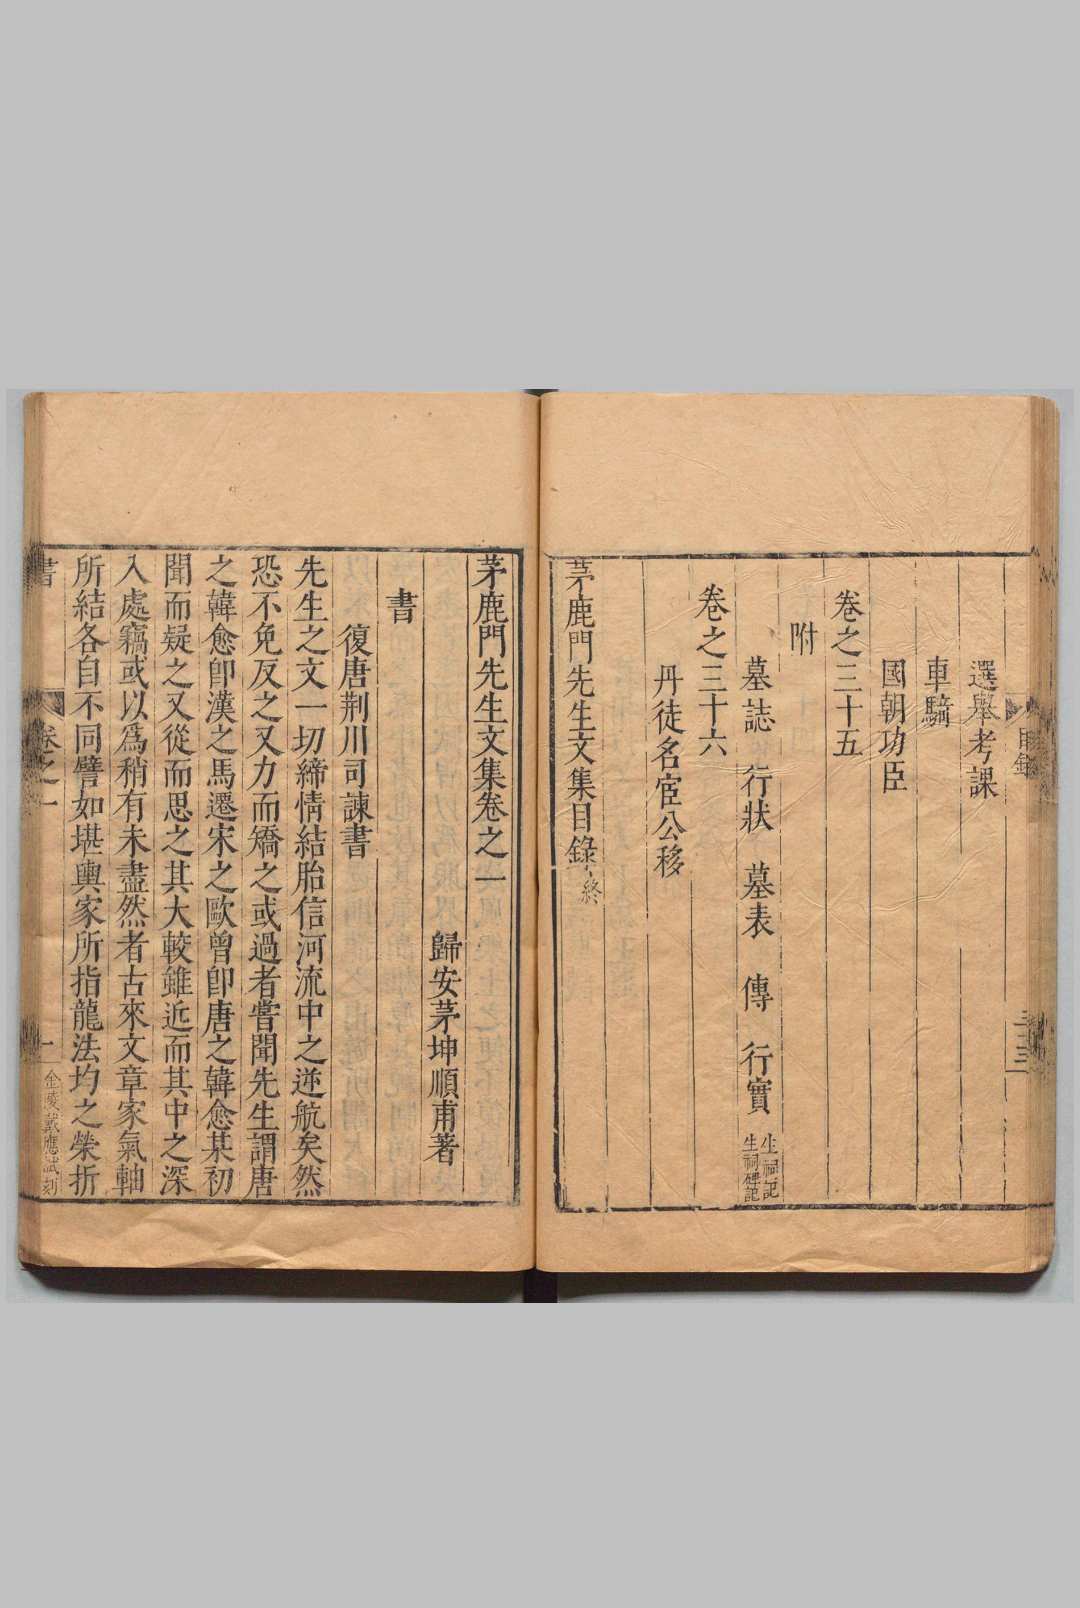 選舉考課
車騎
國朝功臣
卷之三十五
附
墓誌 行狀 墓表 傳 行實 生祠記 生祠碑記
卷之三十六
丹徒名宦公移
茅鹿門先生文集目錄終
茅鹿門先生文集卷之一
歸安茅坤順甫著
書
復唐荆川司諫書
先生之文一切締情結胎信河流中之逆航矣然
恐不免反之又力而矯之或過者嘗聞先生謂唐
之韓愈卽漢之馬遷宋之歐曾卽唐之韓愈某初
聞而疑之又從而思之其大較雖近而其中之深
入處竊或以爲稍有未盡然者古來文章家氣軸
所結各自不同譬如堪輿家所指龍法均之縈折
書
卷之一
一
金陵戴應試刻